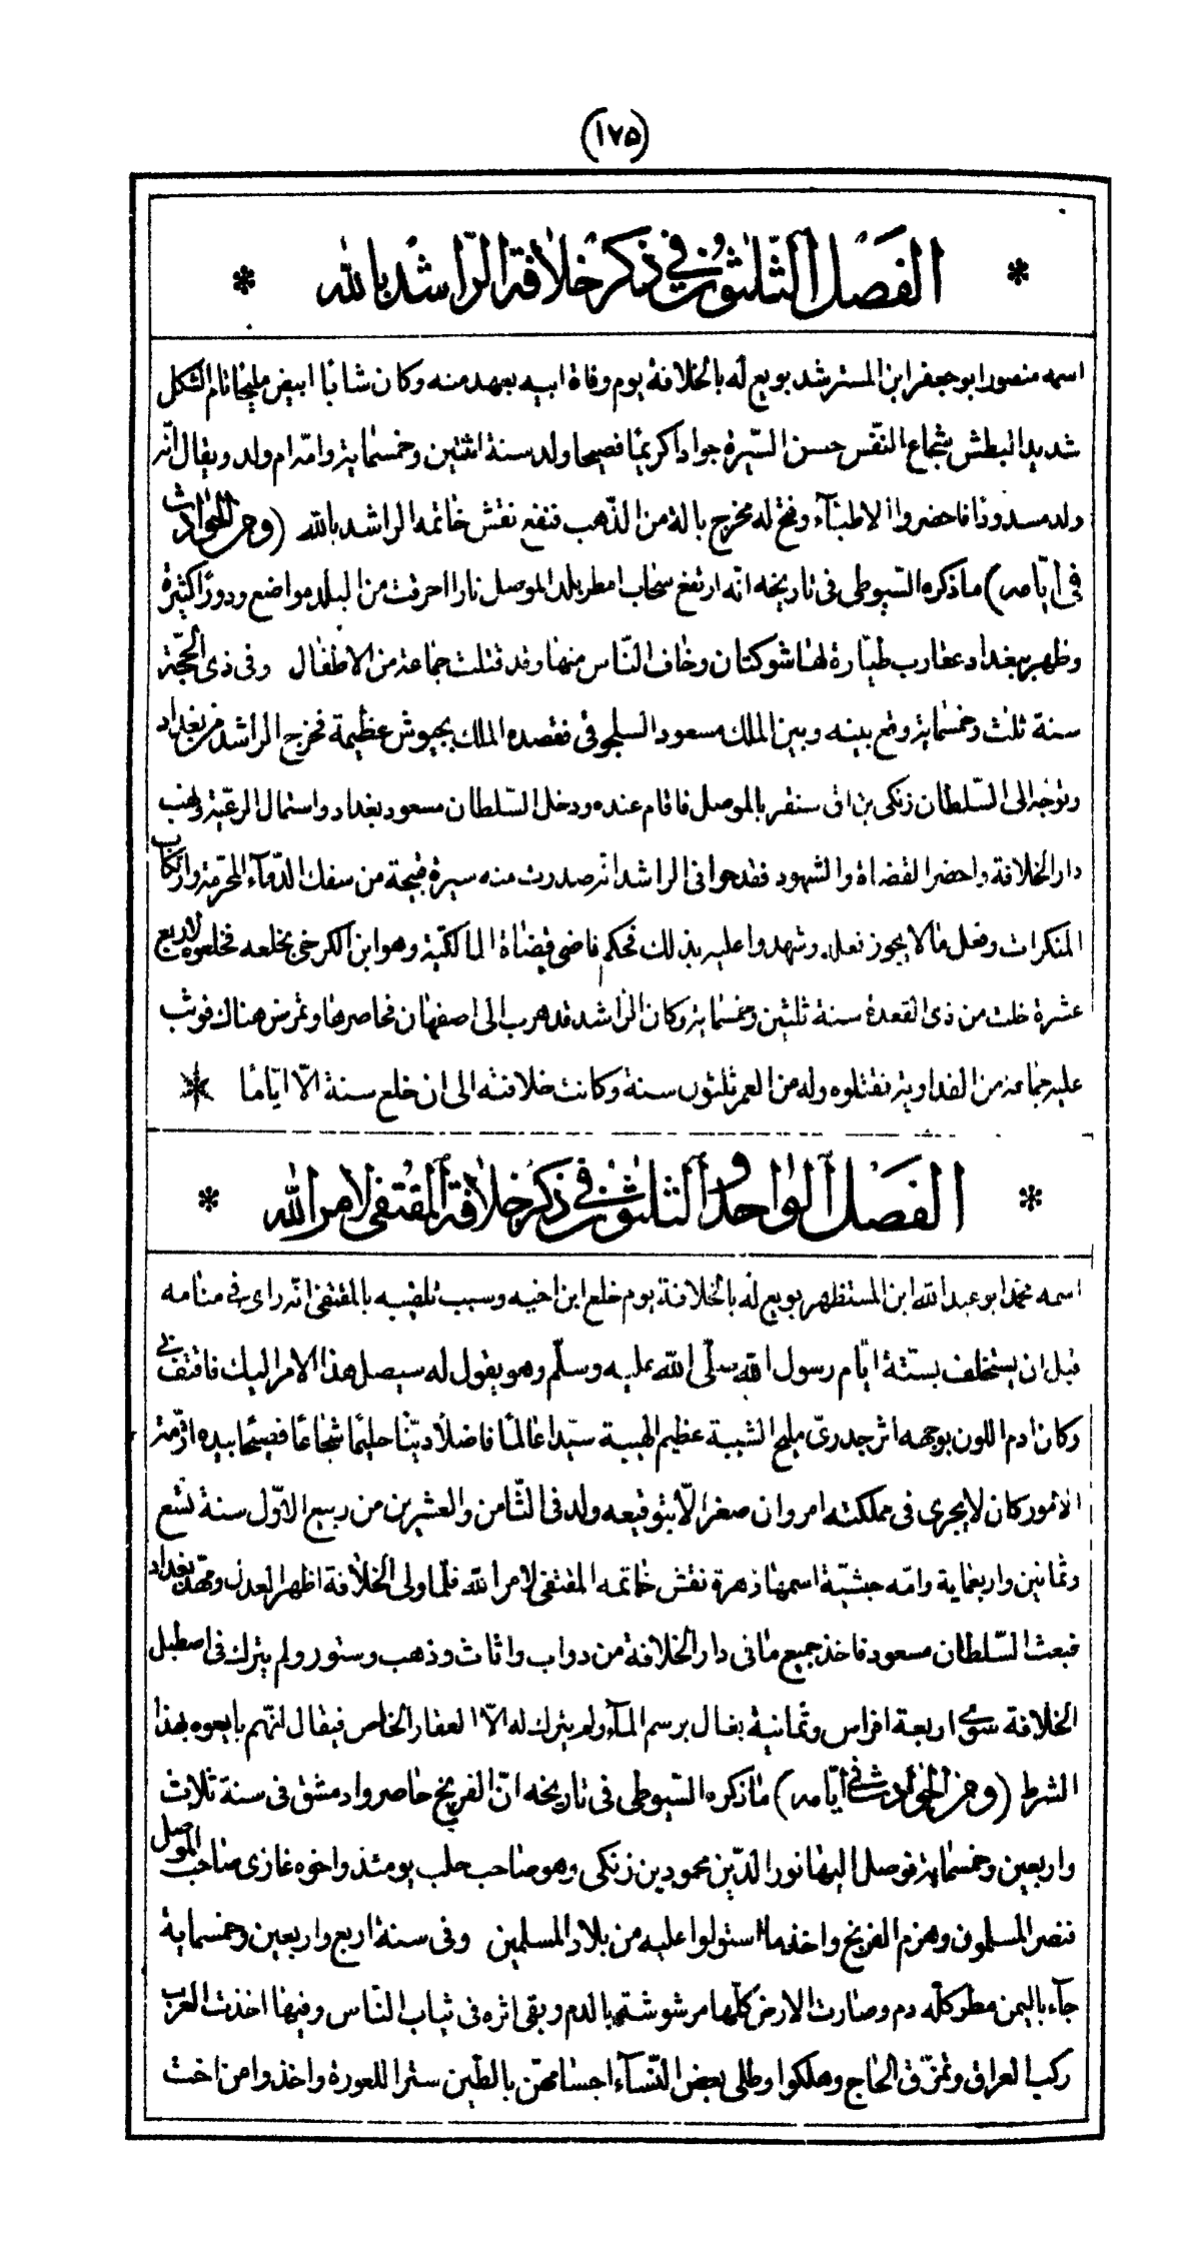 (١٧٥)
* الفصل الثلٰثون في ذكر خلافة الرّاشد بالله *
اسمه منصور ابو جعفر ابن المسترشد بويع له بالخلافة يوم وفاة ابيه بعهد منه وكان شابًا ابيض مليحًا تام الشكل
شديد البطش شجاع النّفس حسن السّيرة جوادا كريمًا فصيحا ولد سنة اثنتين وخمسماية وامّه ام ولد ويقال انّه
ولد مسدودًا فاحضروا الاطبّآء وفتح له مخرج بالة من الذّهب فنفع نقش خاتمه الراشد بالله (ومن الحوادث
في أيّامه) ما ذكره السّيوطى فى تاريخه انّه ارتفع سحاب امطر بلد الموصل نارا احرقت من البلد مواضع ودورًا كثيرة
وظهر ببغداد عقارب طيّارة لها شوكتان وخاف النّاس منها وقد قتلت جماعة من الاطفال وفى ذى الحجّة
سنة ثلث وخمسماية وقع بينه وبين الملك مسعود السلجوقى فقصده الملك بجيوش عظيمة فخرج الراشد من بغداد
وتوجّه الى السّلطان زنكى بن اق سنقر بالموصل فاقام عنده ودخل السّلطان مسعود بغداد واستمال الرعيّة ونهب
دار الخلافة واحضر القضاة والشهود فقدحوا فى الراشد انّه صدرت منه سيرة قبيحة من سفك الدّمآء المحرّمة وارتكاب
المنكرات وفعل ما لا يجوز فعله وشهدوا عليه بذلك فحكم قاضى قضاة المالكيّة وهو ابن الكرخى بخلعه فخلعوه لاربع
عشرة خلت من ذى القعدة سنة ثلثين وخمسماية وكان الراشد قد هرب الى اصفهان فحاصرها وتمرض هناك فوثب
عليه جماعة من الفداوية فقتلوه وله من العمر ثلثون سنة وكانت خلافته الى ان خلع سنة الّا ايّامًا *
* الفصل الواحد والثلٰثون في ذكر خلافة المقتفى لامر الله *
اسمه محمّد ابو عبد الله ابن المستظهر بويع له بالخلافة يوم خلع ابن اخيه وسبب تلقيبه بالمقتفى انّه راى في منامه
قبل ان يستخلف بستّة ايّام رسول الله صلّى الله عليه وسلّم وهو يقول له سيصل هذا الامر اليك فاقتف بى
وكان ادم اللون بوجهه اثر جدرىّ مليح الشيبة عظيم الهيبة سيّدا عالمًا فاضلًا ديّنًا حليمًا شجاعًا فصيحًا بيده ازمّة
الامور كان لا يجرى فى مملكته امر وان صغر الّا بتوقيعه ولد فى الثّامن والعشرين من ربيع الاوّل سنة تسع
وثمانين واربعماية وامّه حبشيّة اسمها زهرة نقش خاتمه المقتفى لامر الله فلمّا ولى الخلافة اظهر العدل ومهّد بغداد
فبعث السّلطان مسعود فاخذ جميع ما فى دار الخلافة من دواب واثاث وذهب وستور ولم يترك فى اصطبل
الخلافة سوى اربعة افراس وثمانية بغال برسم المآء ولم يترك له الّا العقار الخاص فيقال انّهم بايعوه بهذا
الشرط (ومن الحوادث في أيّامه) ما ذكره السّيوطى فى تاريخه انّ الفرنج حاصروا دمشق فى سنة ثلاث
واربعين وخمسماية فوصل اليها نور الدّين محمود بن زنكى وهو صاحب حلب يومئذ واخوه غازى صاحب الموصل
فنصر المسلمون وهزم الفرنج واخذ ما استولوا عليه من بلاد المسلمين وفى سنة اربع واربعين وخمسماية
جآء باليمن مطر كلّه دم وصارت الارض كلّها مرشوشة بالدم وبقى اثره فى ثياب النّاس وفيها اخذت العرب
ركب العراق وتمزّق الحاج وهلكوا وطلى بعض النّسآء اجسامهنّ بالطّين سترا للعورة واخذوا من اخت